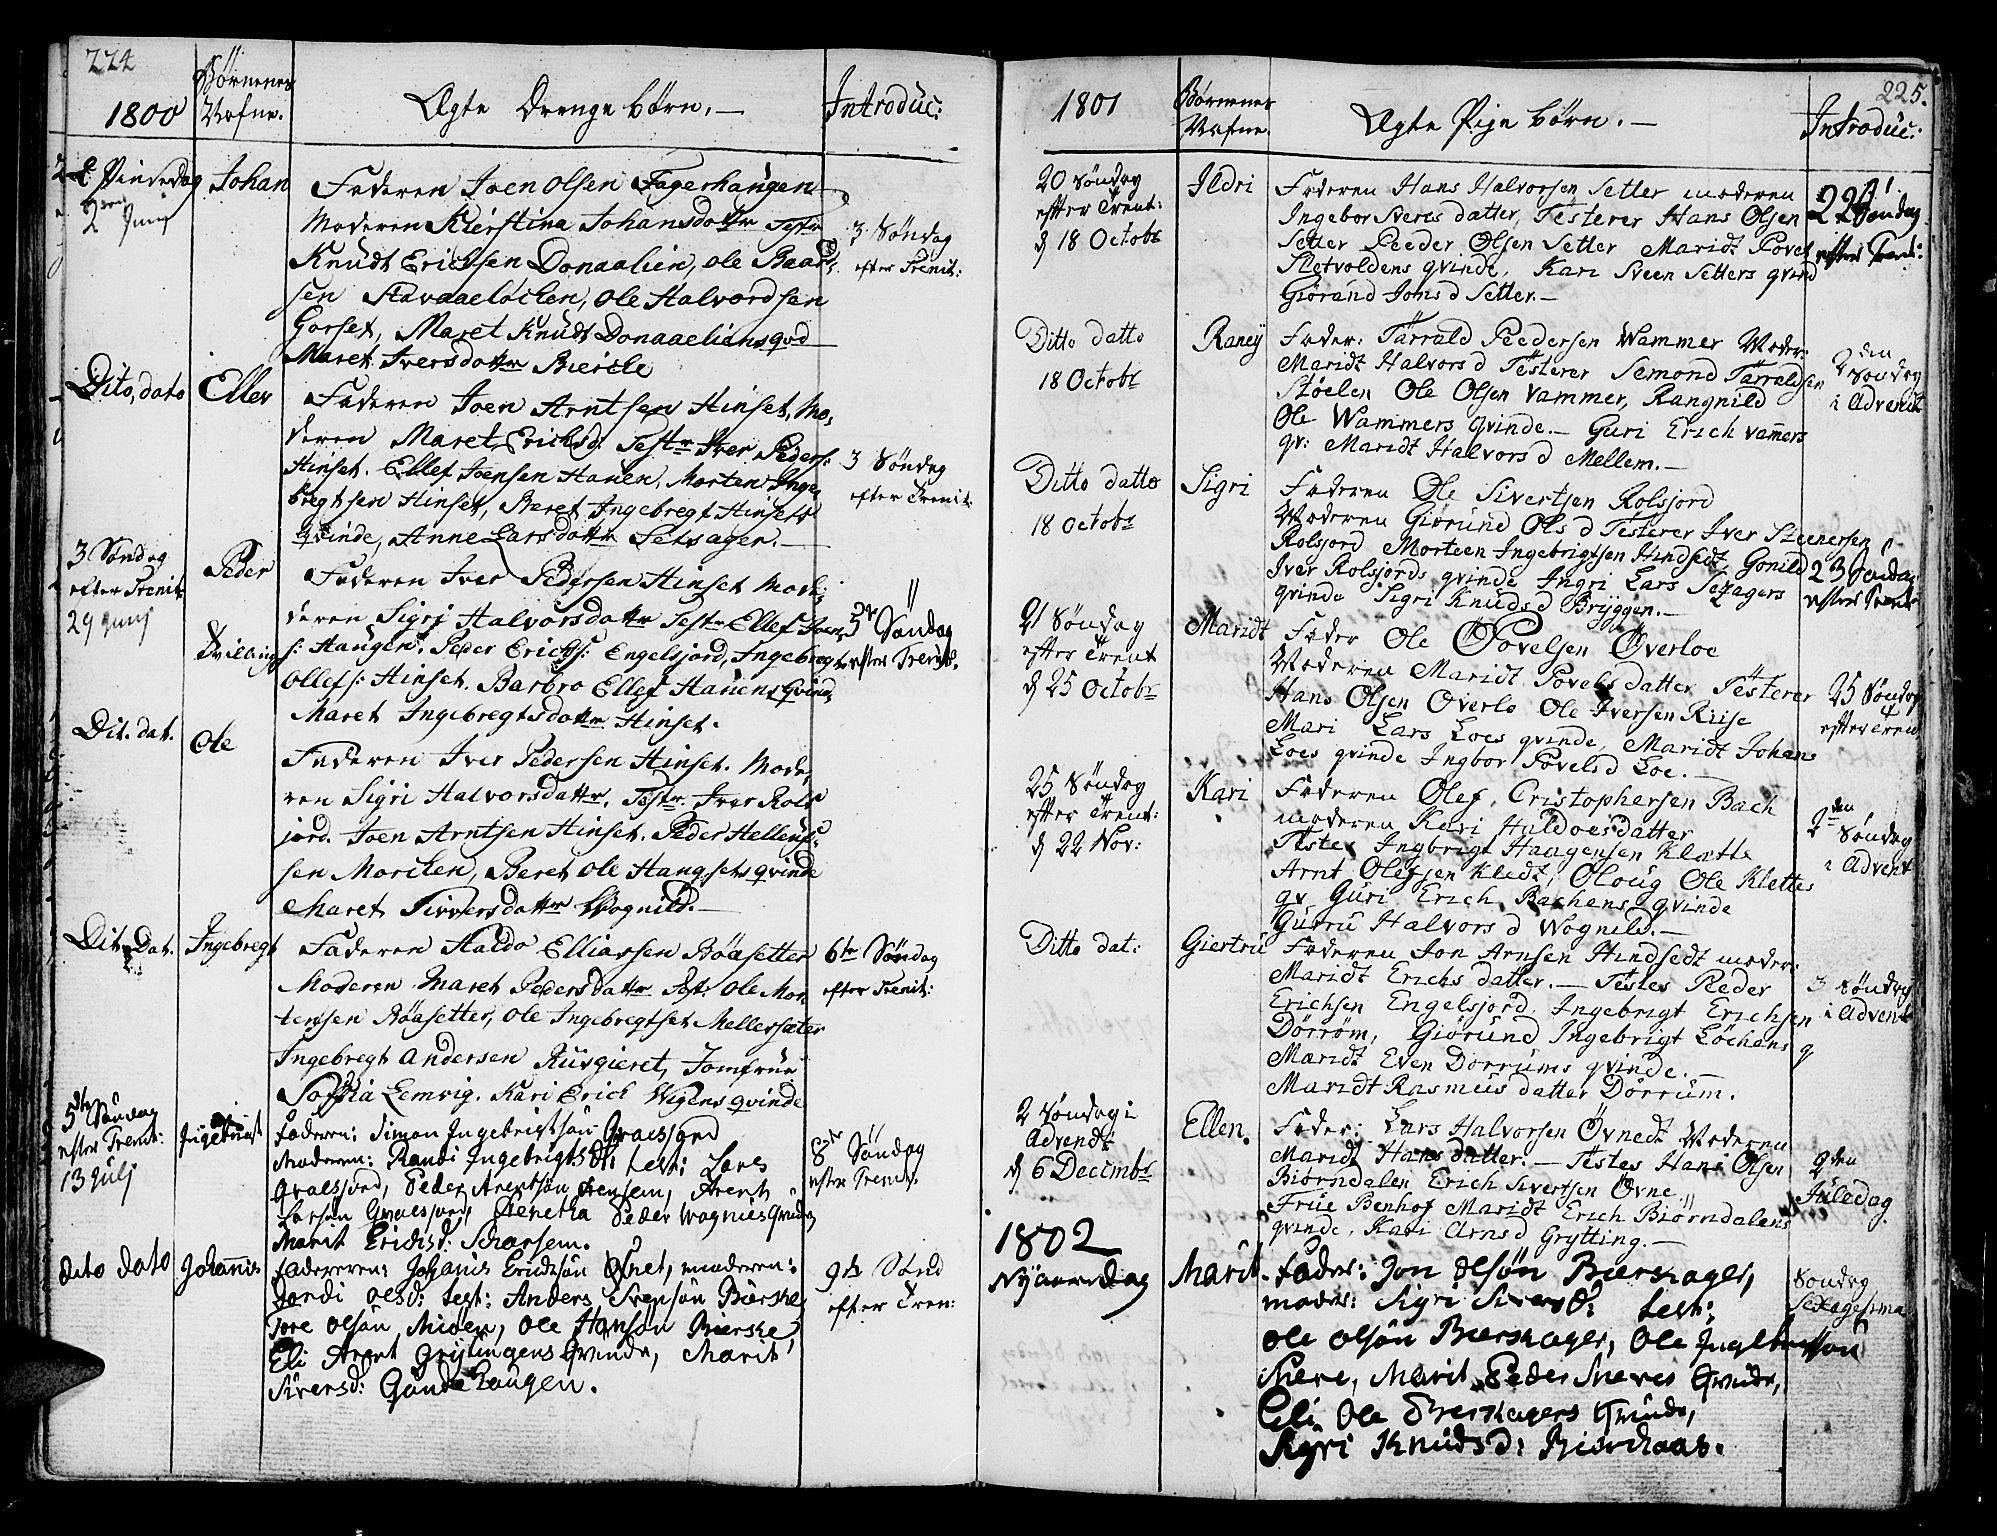 224
1800
Børnenes
Nafne.
Ægte Drenge børn. —
Introduc:
2 Pinsedag
2 Junij
Johan
Faderen Joen Olsen Fagerhaugen
Moderen Kierstina Johansdattr Testr
Knudt Erichsen Donaalien, ole Baard
sen Stavaaeløcken, Ole Halvordsen
Gorset, Maret Knudt Donaaeliens qvd
Maret Iversdattr Bierke
3 Søndag
efter Trenit:
Dito, dato
Ellev
Faderen Joen Arntsen Hinset, Mo,
deren Maret Ericksd: Testr Iver Peders:
Hinset. Ellef Joensen Hauen, Morten Inge,
bregtsen Hinset, Beret Ingebregt Hinsets
Qvinde, Anne Larsdattr Setsager. —
3 Søndag
efter Trenit:
3 Søndag
efter Trenit:
29 Junij
Peder
Tvilling
Faderen Iver Pedersen Hinset Mod,
deren Sigrj Halvorsdattr Testr Ellef Joen
s: Haugen. Peder Ericks: Engelsjord, Ingebregt
Ollefs: Hinset. Barbro Ellef Hauens Qvind,
Maret Ingebregtsdattr Hinset.
5te Søndag
efter Trenit:
Dit. dat.
Ole
Faderen Iver Pedersen Hinset. Mode,
ren Sigri Halvorsdattr, Testr. Iver Rols
jord. Joen Arntsen Hinset. Peder Hellens
sen Morcken, Beret Ole Haugsets qvinde
Maret Sivversdattr Wognild. —
Dit. Dat.
Ingebregt
Faderen Haldo Elliassen Böasetter
Moderen Maret Pedersdattr Test. Ole Mor
tensen Böasetter, Ole Ingebregtsen Mellersæter
Ingebregt Andersen Rusgieret, Jomfrue
Soffia Lemvig. Kari Erick Vigens qvinde
6te Søndag
efter Trenit:
5te Søndag
efter Trenit:
13 Julj
Faderen: Simon Ingebrigtsøn Graesjord
Moderen: Randi Ingebrigts D: test: Lars
Graesjord, Peder Arentsøn, Arent
Larsøn Graesjord, Renetha Peder Wognies Qvinde
Marit Erichsd:
8de Søndag
efter Trenit.
dito dato
Johannis
Faderen: Johanis Erichsøn Øfnet, moderen:
Jordi Olsd: test: Anders Svensøn Bierske
Tore Olsøn Mioen, Ole Hansøn Bierske
Eli Arent Grytingens Qvinde, Marit
Siversd: Haugen.
9de Sönd
efter Tren:
225.
1801
Børnenes
Nafne.
Ægte Pige børn. —
Introduc:
20 Søndag
efter Trent:
d 18 Octobr
Ildri
Faderen Hans Halvorsen Setter moderen
Ingebor Sversdatter, Testerer Hans Olsen
Setter Peeder Olsen Setter Maridt Povel
Sletvoldens qvinde, Kari Sveen Setters qvind
Giørand Jonsd Setter. —
22 Søndag
efter Trent:
Ditto datto
18 Octobr
Raney
Fader: Tarrald Peedersen Wammer Moder:
Maridt Halvors d Testerer Semond Tarraldsen
Støelen Ole Olsen Vammer, Rangnild
Ole Wammers qvinde. — Guri Erich vamers
qv: Maridt Halvors d Mellem. —
2den
Søndag
i Advent
Ditto datto
18 Octobr
Sigri
Faderen Ole Sivertsen Rolsjord
Moderen Giørund Ols d Testerer Iver Steenersen
Rolsjord Morteen Ingebrigtsen Hindsedt, Gonild
Iver Rolsjords qvinde Ingri Lars Sezagers
qvinde Sigri Knudsd Bryggen. —
23 Søndag
efter Trent
21 Søndag
efter Trent
d 25 Octobr
Maridt
Fader Ole Povelsen Øverloe
Moderen Maridt Povels datter Testerer
Hans Olsen Overlo Ole Iversen Riise
Mari Lars Loes qvinde, Maridt Johans
Loes qvinde Ingbor Povelsd Loe. —
25 Søndag
efter Tren
25 Søndag
efter Trent:
d 22 Nov:
Kari
Faderen Olef Cristophersen Bach
moderen Kari Haldoesdatter
Testes Ingbrigt Haagensen Klætte
Arnt Olefsen Kledt, Oloug Ole Klettes
qv Guri Erich Bachens qvinde
Gurru Halvors d Wognild. —
2den Søndag
i Advent
Ditto dat:
Giertru
Faderen Jon Arnsen Hindsedt moder:
Maridt Erichs datter. — Testes Peder
Erichsen Engelsjord Ingebrigt Erichsen
Dørrøm, Giørund Ingebrigt Løchens q
Maridt Even Dorrums qvinde. —
Maridt Rasmus datter Dörrum.
3 Søndag
i Advent
2 Søndag i
Advendt
d 6 Decembr
Ellen.
Fader: Lars Halvorsen Övnedt Moderen
Maridt Hans datter. — Testes Hans Olsen
Biørndalen Erich Sivertsen Övne
Frue Benhof Maridt Erich Biørndalens
qvinde, Kari Arnsd Grytting. —
2den
Juledag
1802
Nyaarsdag
Marit
Fader: Jon Olsøn Bierskager,
moder: Sigri Sivers D: test:
Ole Olsøn Bierskager, Ole Ingebretsøn
Mere, Marit Peder Meres Qvinde,
Eli Ole Bierskagers Qvinde,
Sigri Knuds d:
Søndag
Sexagesima